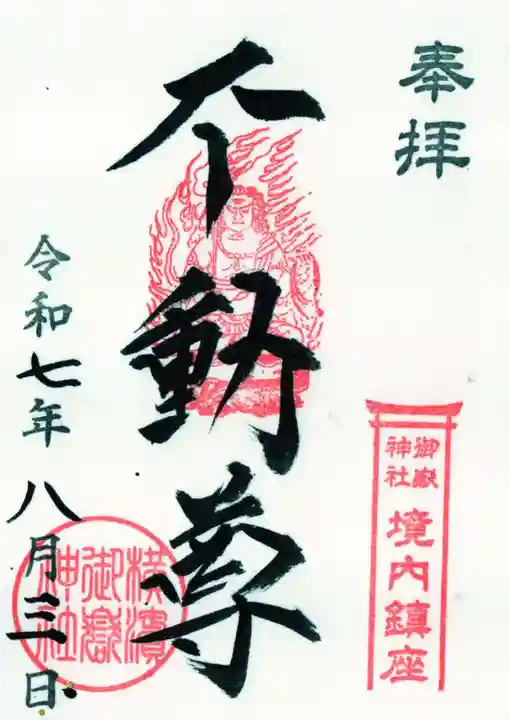 奉拝
御嶽
神社
境内鎮座
不動尊
横濱
御嶽
神社
令和七年八月三日